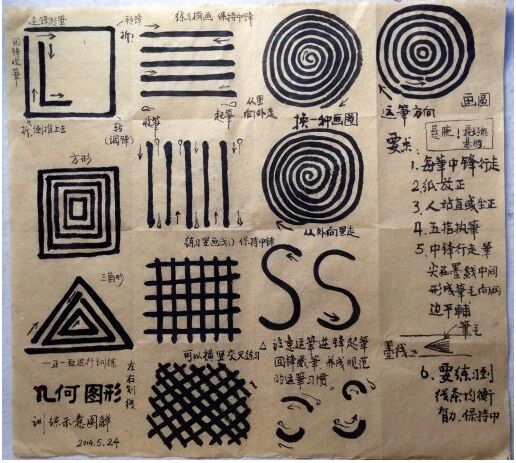 逆锋起筆
转锋
折
回锋收筆
折,倒推上去
转
(调锋)
练习横画 保持中锋
收筆
起筆
从里向外走
换一种画圆
运筆方向
画圆
方形
练习竖画 保持中锋
从外向里走
三角形
一正一反进行训练
左右划线
几何图形
训练示意图解
2014.5.24
可以横竖交叉练习
注意运筆逆锋起筆
回锋藏筆 养成规范
的运筆习惯。
要求:
悬腕
1.每筆中锋行走
2.纸放正
3.人站直或坐正
4.五指执筆
5.中锋行走筆
尖在墨线中间
形成筆毛向两
边平铺
筆毛
墨线
6.要练习到
线条均衡
有力.保持中